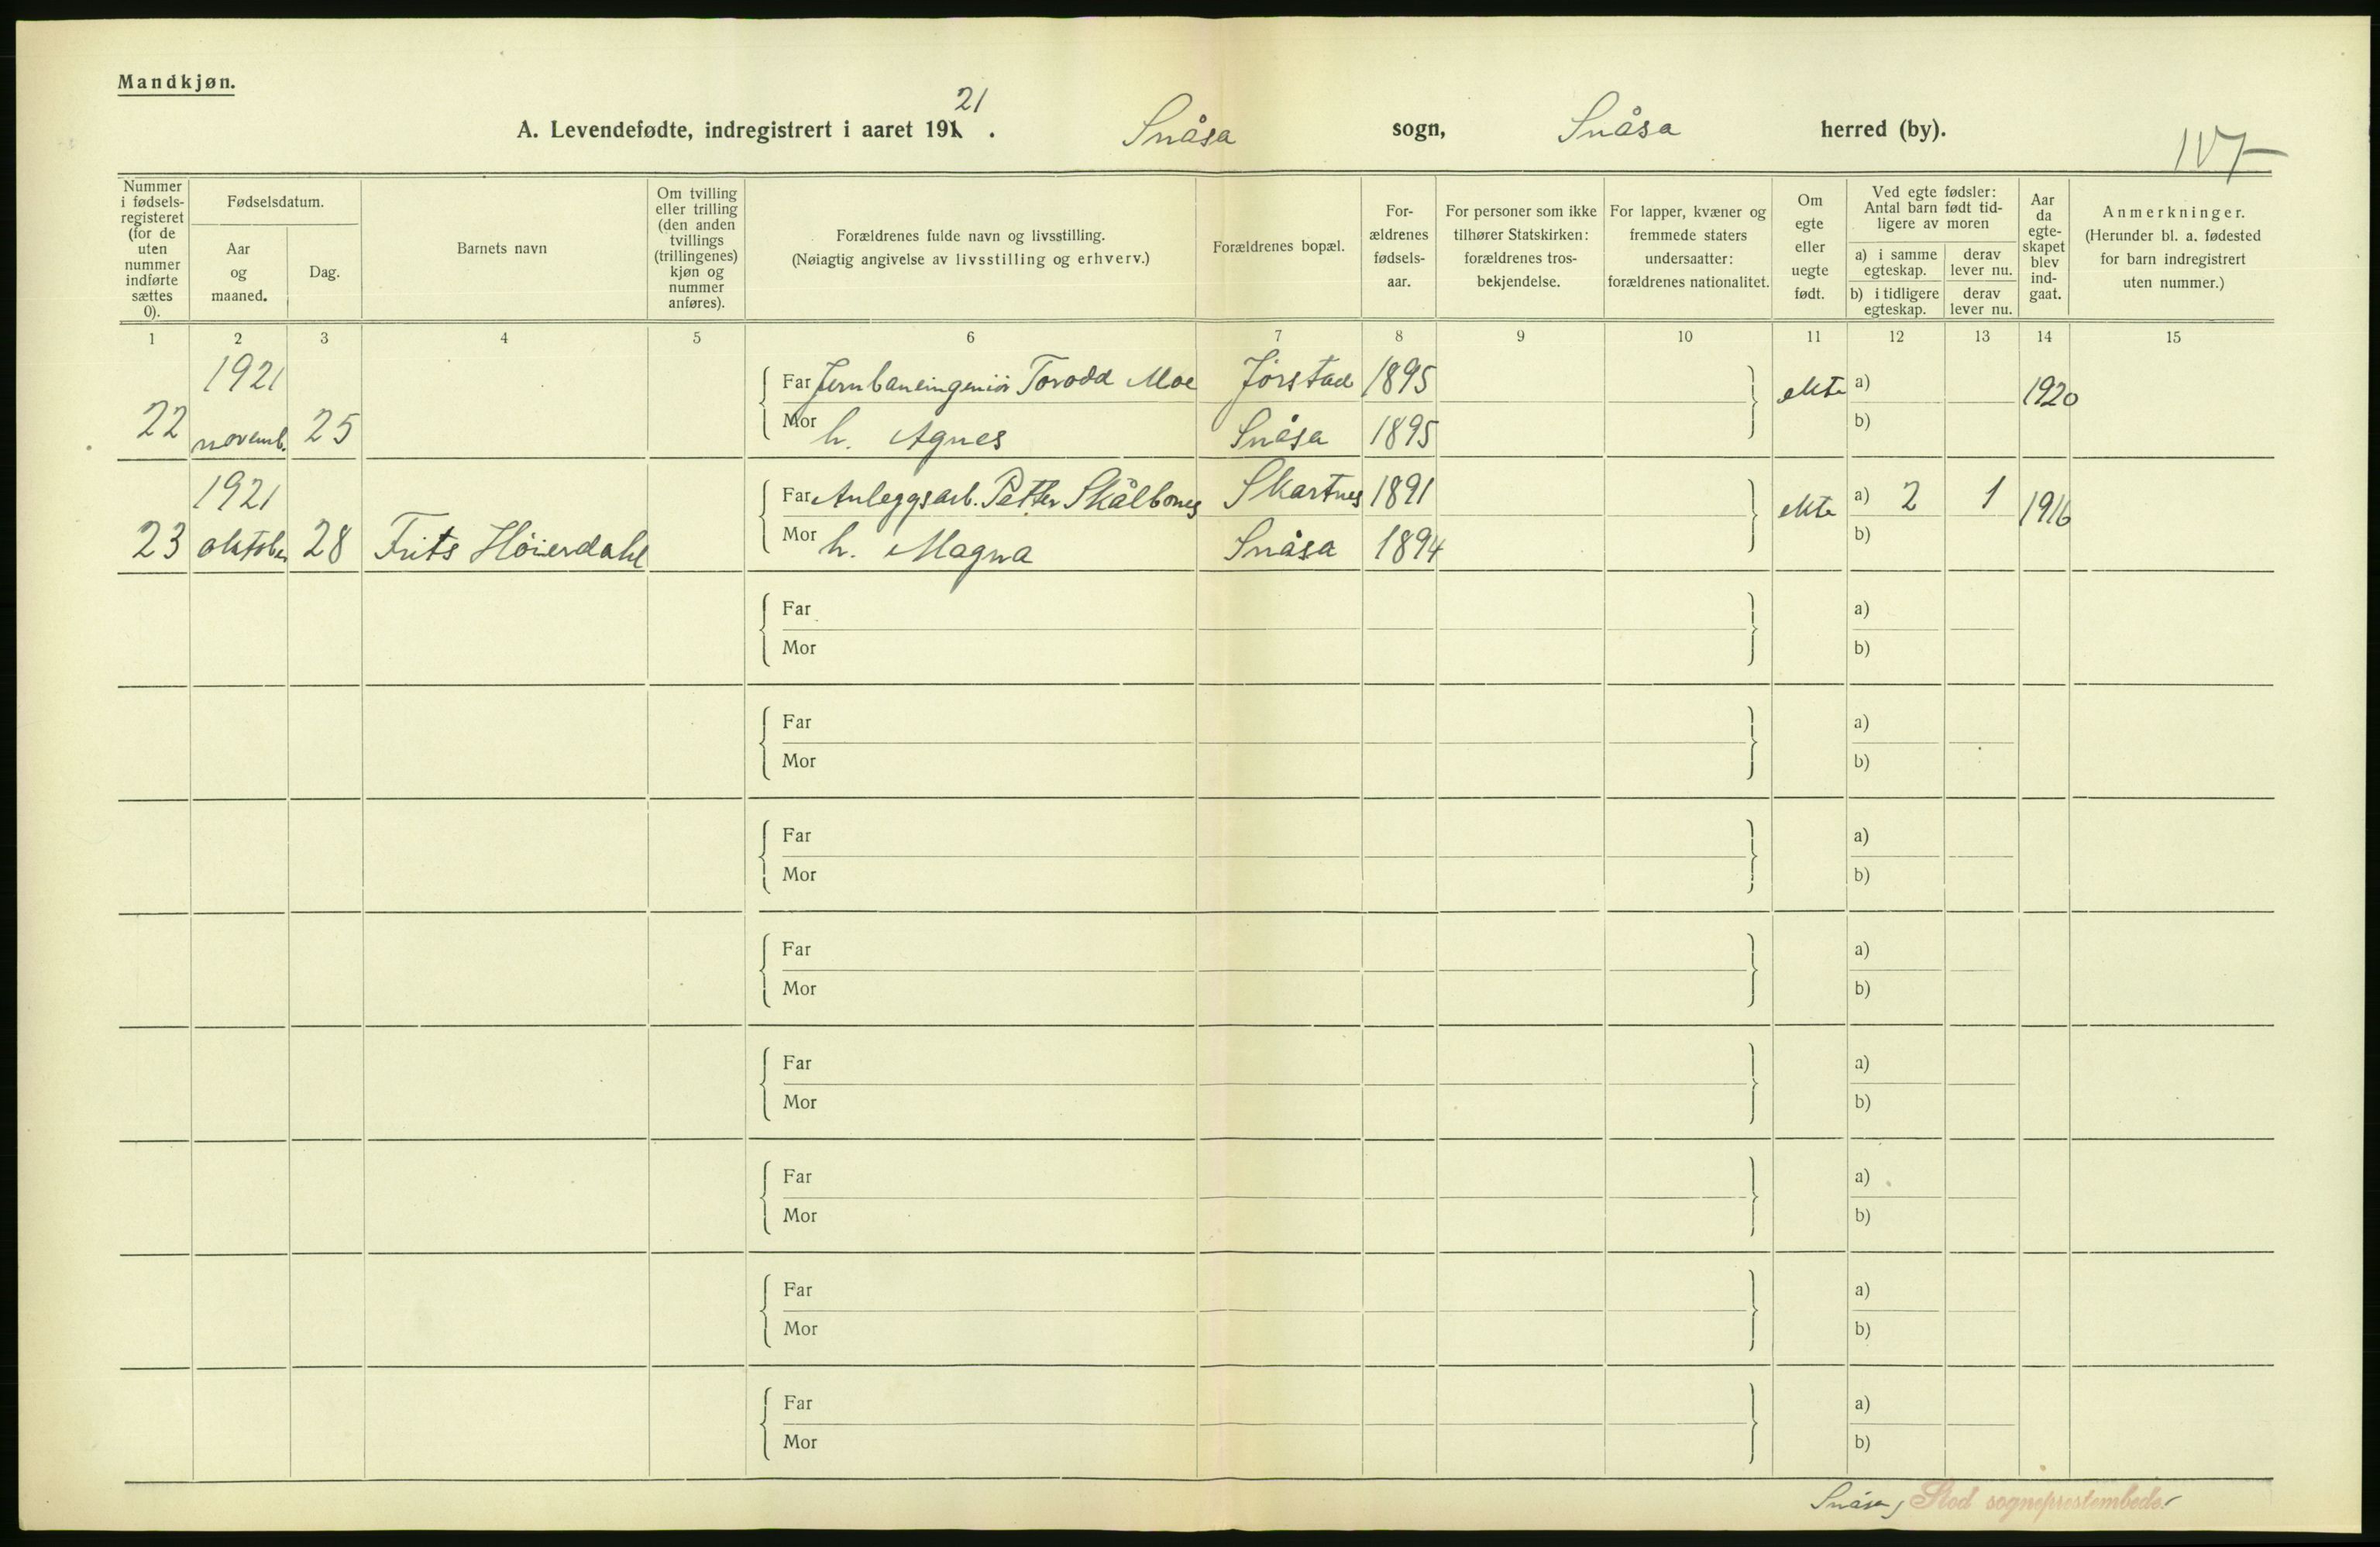 Mandkjøn.
A. Levendefødte, indregistrert i aaret 191 21. Snåsa sogn, Snåsa herred (by).
Nummer i fødsels-registeret (for de uten nummer indførte sættes 0).
Fødselsdatum.
Aar og maaned.
Dag.
Barnets navn
Om tvilling eller trilling (den anden tvillings (trillingenes) kjøn og nummer anføres).
Forældrenes fulde navn og livsstilling.
(Nøiagtig angivelse av livsstilling og erhverv.)
Forældrenes bopæl.
For-ældrenes fødsels-aar.
For personer som ikke tilhører Statskirken: forældrenes tros-bekjendelse.
For lapper, kvæner og fremmede staters undersaatter: forældrenes nationalitet.
Om egte eller uegte født.
Ved egte fødsler: Antal barn født tid-ligere av moren
a) i samme egteskap.
derav lever nu.
b) i tidligere egteskap.
derav lever nu.
Aar da egte-skapet blev ind-gaat.
Anmerkninger.
(Herunder bl. a. fødested for barn indregistrert uten nummer.)
1 2 3 4 5 6 7 8 9 10 11 12 13 14 15
1921 Far Jernbaneingeniör Torodd Moe Jörstad 1895 ekte a) 1920
22 novemb. 25 Mor h. Agnes Snåsa 1895 b)
1921 Far Anleggsarb. Petter Skålbones Skartnes 1891 ekte a) 2 1 1916
23 oktober 28 Frits Höierdahl Mor h. Magna Snåsa 1894 b)
Far a)
Mor b)
Far a)
Mor b)
Far a)
Mor b)
Far a)
Mor b)
Far a)
Mor b)
Far a)
Mor b)
Far a)
Mor b)
Far a)
Mor b)
Snåsa, Stod sogneprestembede.